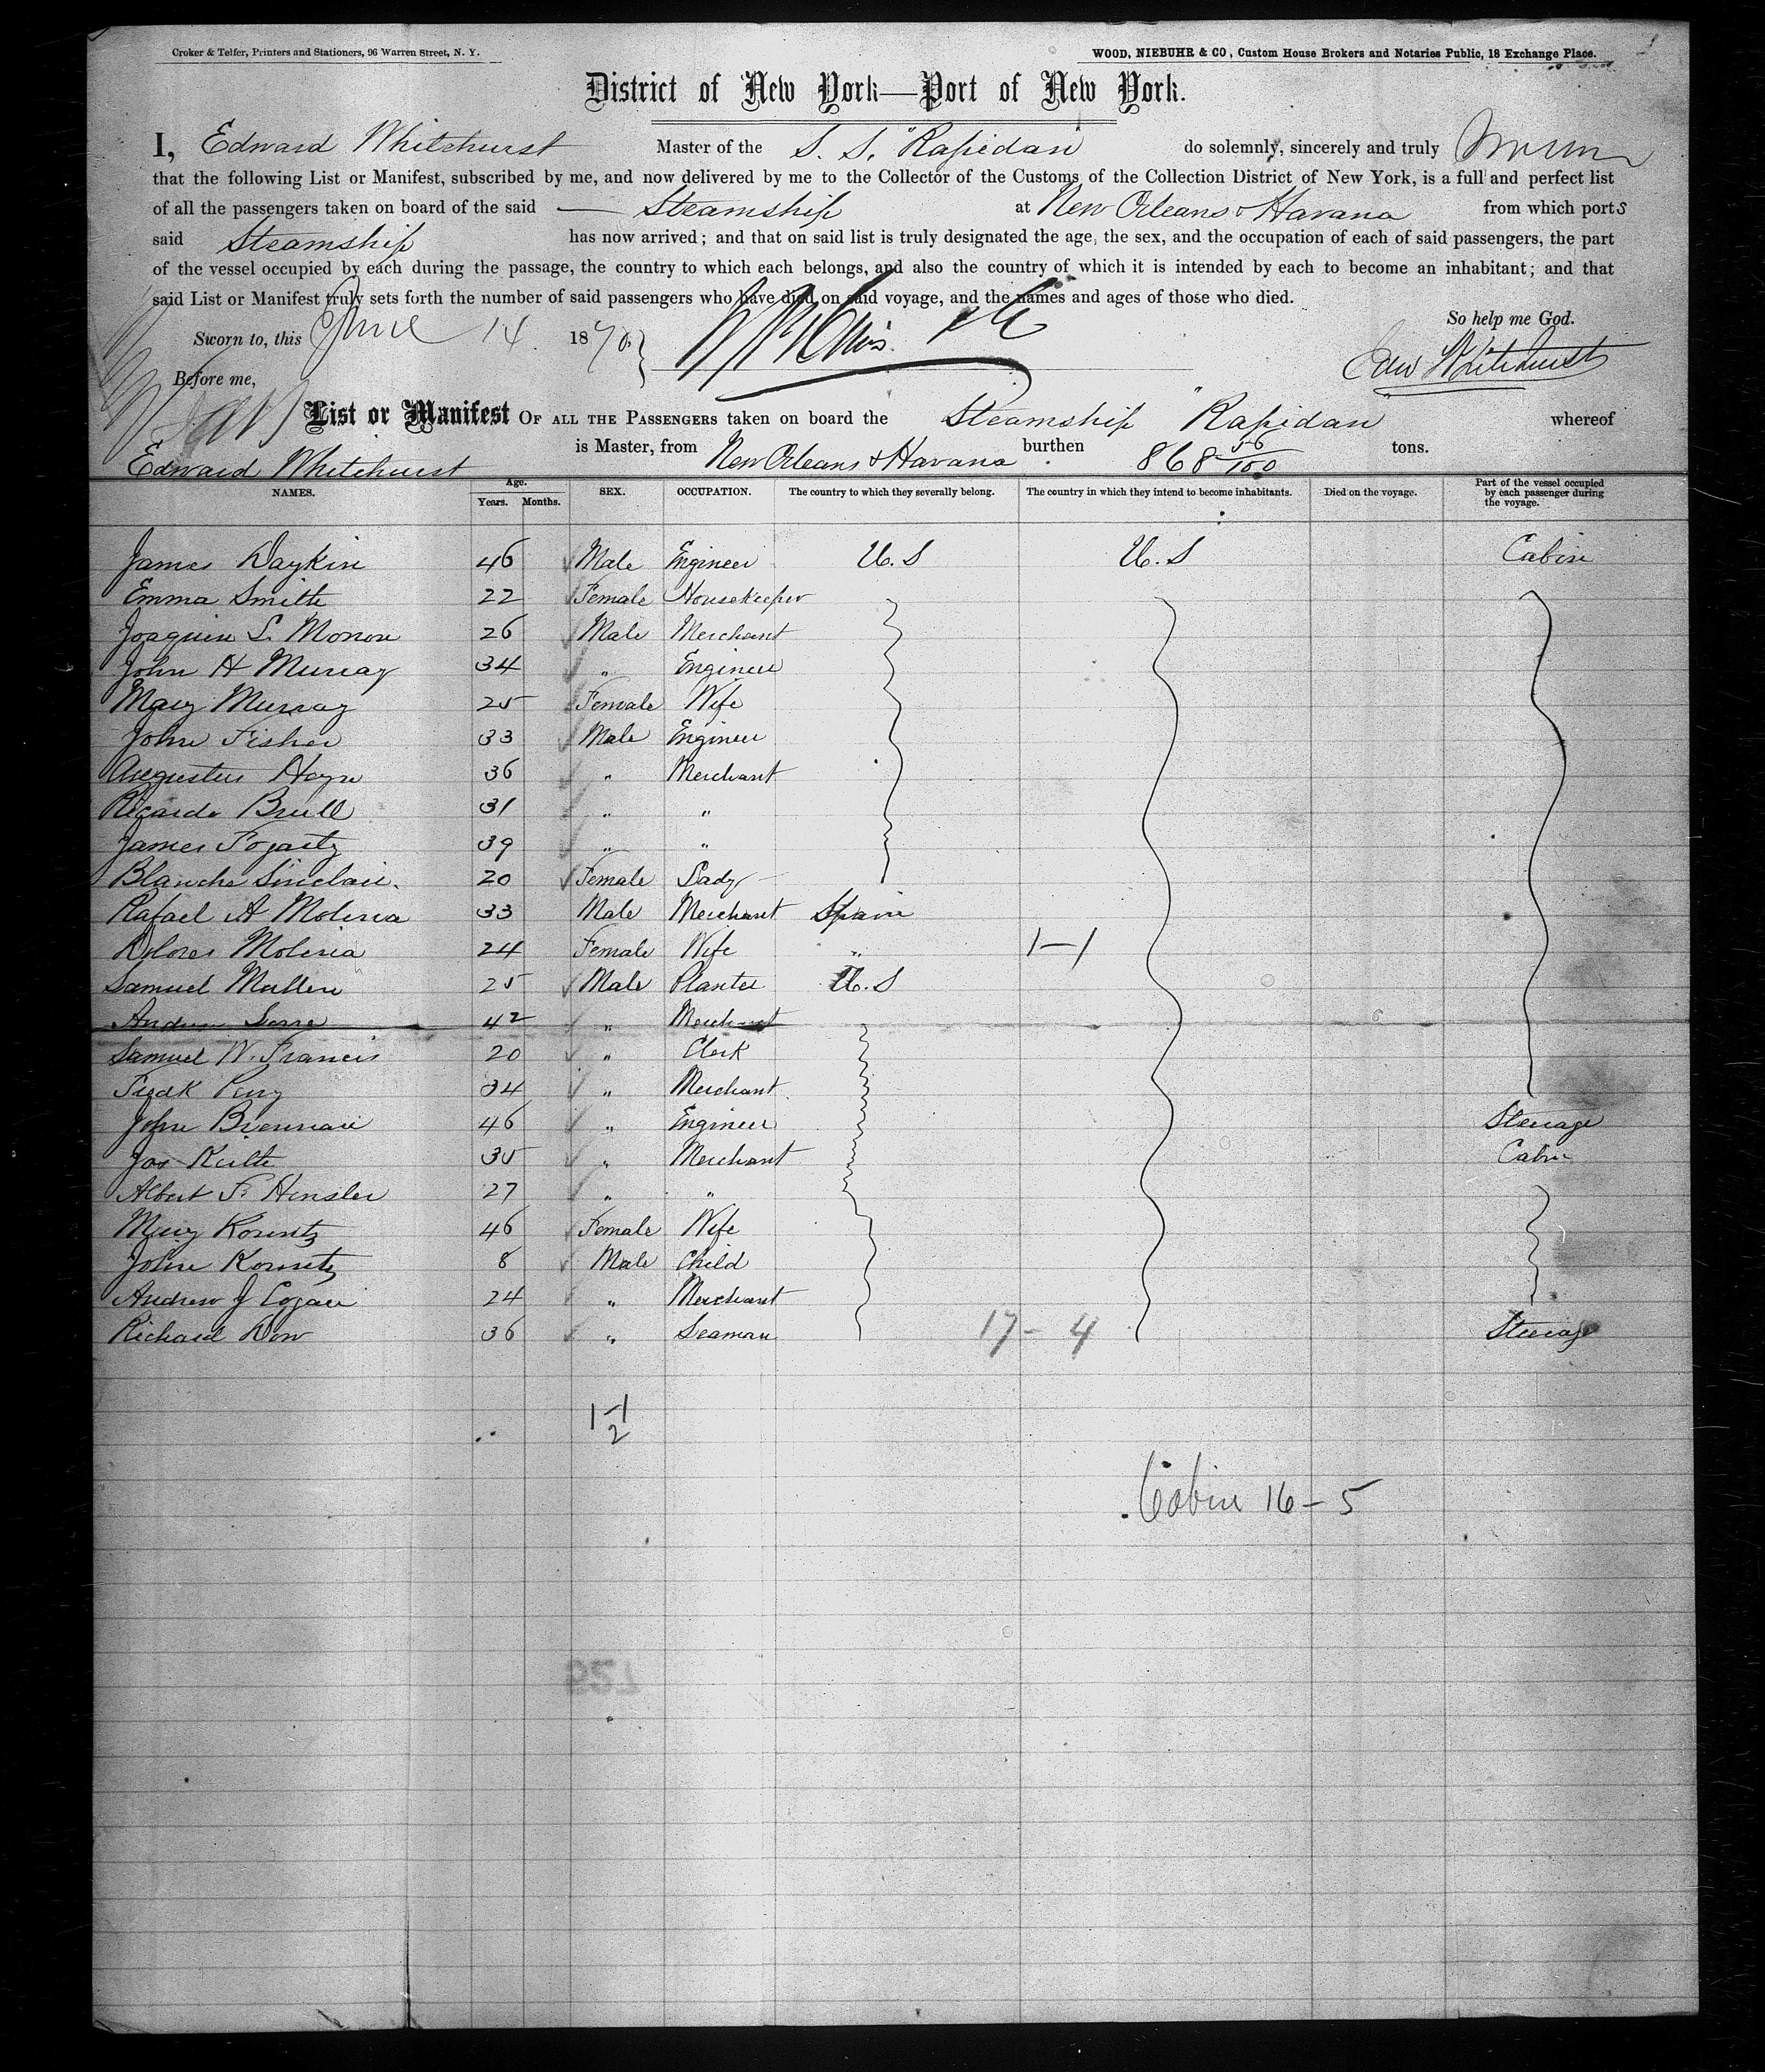 Croker & Telfer, Printers and Stationers, 96 Warren Street, N. Y.
WOOD, NIEBUHR & CO, Custom House Brokers and Notaries Public, 18 Exchange Place.
District of New York—Port of New York.
I, Edward Whitehurst Master of the S. S. "Rapidan" do solemnly, sincerely and truly
that the following List or Manifest, subscribed by me, and now delivered by me to the Collector of the Customs of the Collection District of New York, is a full and perfect list
of all the passengers taken on board of the said — Steamship at New Orleans & Havana from which ports
said Steamship has now arrived; and that on said list is truly designated the age, the sex, and the occupation of each of said passengers, the part
of the vessel occupied by each during the passage, the country to which each belongs, and also the country of which it is intended by each to become an inhabitant; and that
said List or Manifest truly sets forth the number of said passengers who have died on said voyage, and the names and ages of those who died.
So help me God.
Sworn to, this June 14 1870
Edw Whitehurst
Before me,
List or Manifest OF ALL THE PASSENGERS taken on board the Steamship "Rapidan" whereof
Edward Whitehurst is Master, from New Orleans & Havana burthen 868 56/100 tons.
NAMES. Age. Years. Months. SEX. OCCUPATION. The country to which they severally belong. The country in which they intend to become inhabitants. Died on the voyage. Part of the vessel occupied by each passenger during the voyage.
James Daykin 46 Male Engineer U.S U.S Cabin
Emma Smith 22 Female Housekeeper
Joaquin L. 26 Male Merchant
John H Murray 34 " Engineer
Mary Murray 25 Female Wife
John Fisher 33 Male Engineer
Augustus 36 " Merchant
Ricardo Brull 31 " "
James Fogarty 39 " "
Blanche Sinclair. 20 Female Lady
Rafael A Molina 33 Male Merchant Spain
Dolores Molina 24 Female Wife " 1-1
Samuel Mullen 25 Male Planter U.S
42 " Merchant
Samuel W. Francis 20 " Clerk
Fredk Perry 34 " Merchant
John Brennan 46 " Engineer Steerage
Jos Keith 35 " Merchant Cabin
Albert F. Hensler 27 " "
Mary Kountz 46 Female Wife
John Kountz 8 Male Child
Andrew J Logan 24 " Merchant
Richard Dow 36 " Seaman 17-4 Steerage
1-1
2
Cabin 16-5